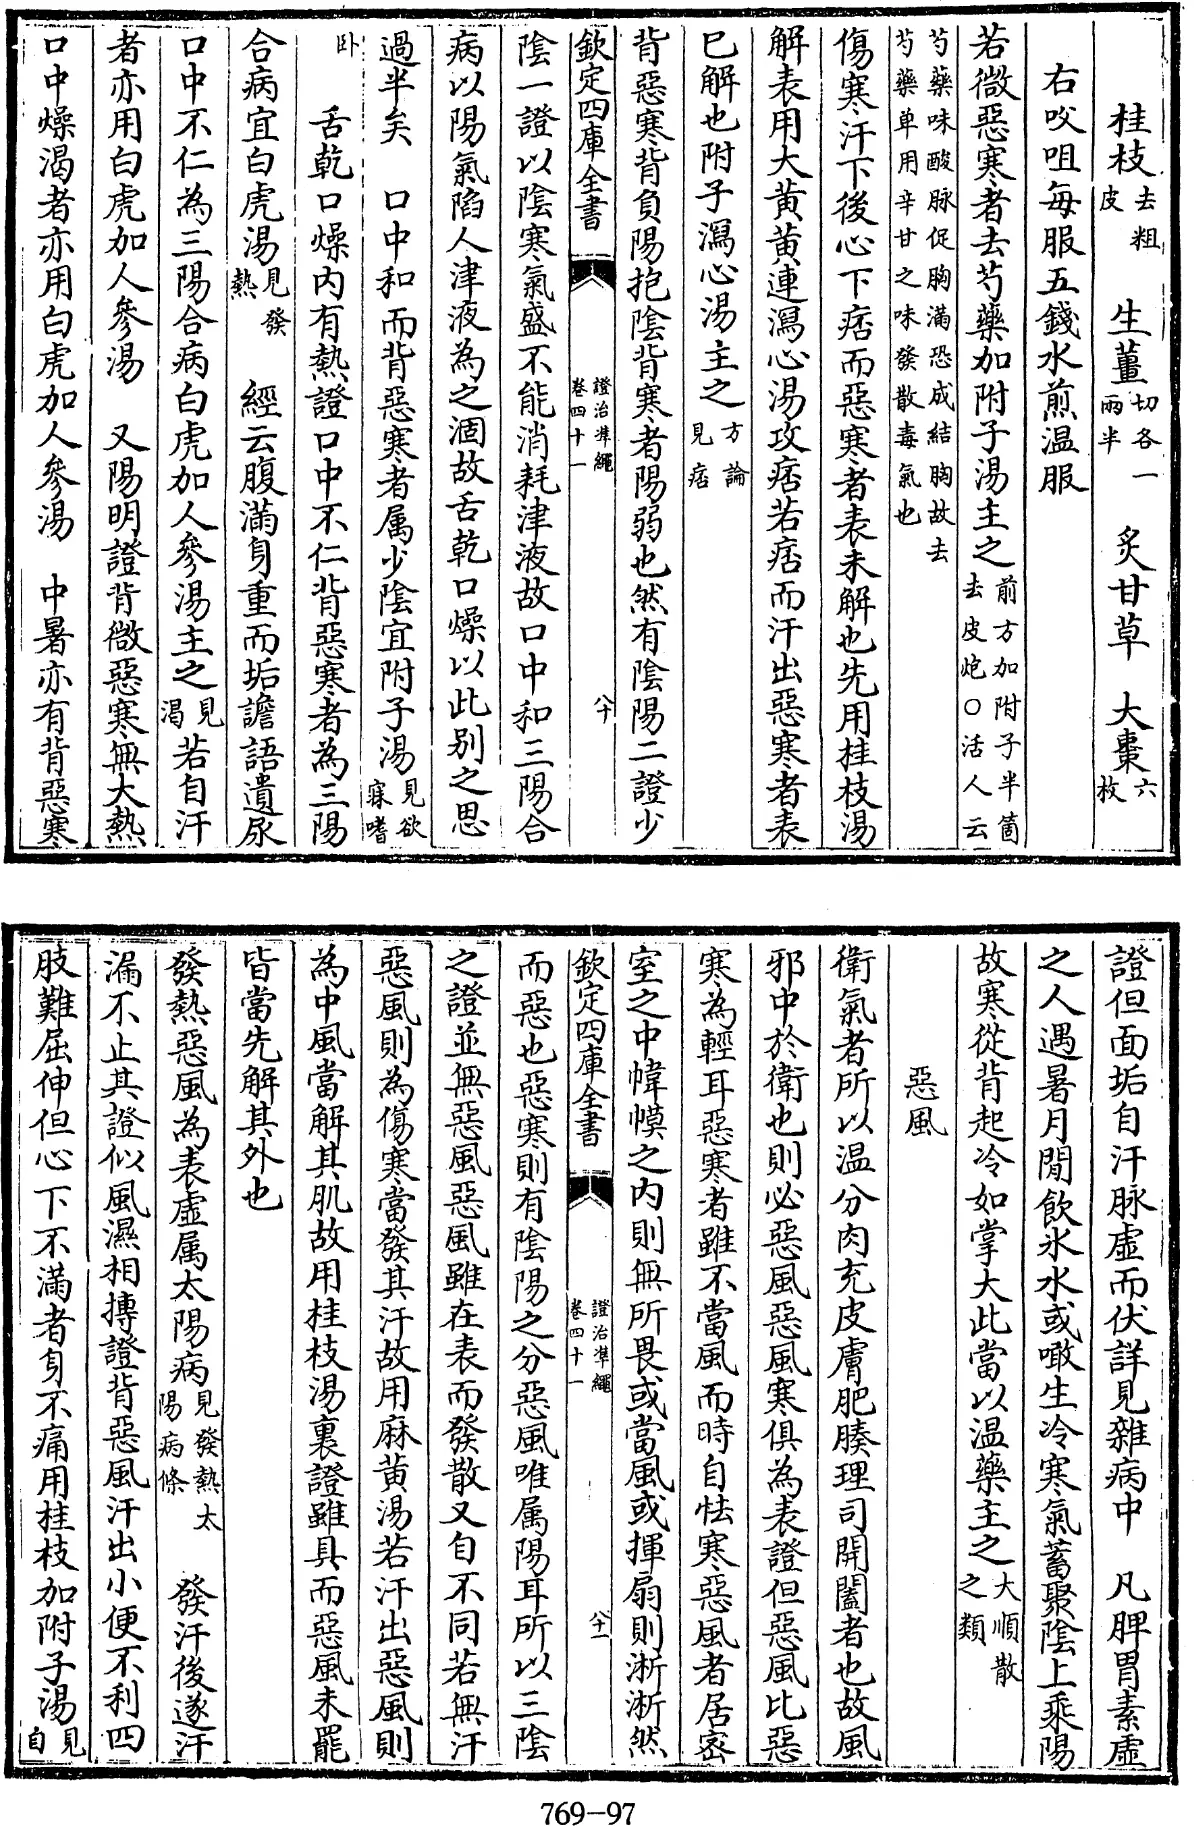 桂枝去粗皮　生薑切各一兩半　炙甘草　大棗六枚
右㕮咀每服五錢水煎温服
若微惡寒者去芍藥加附子湯主之前方加附子半箇去皮炮○活人云
芍藥味酸脉促胸滿恐成結胸故去芍藥單用辛甘之味發散毒氣也
傷寒汗下後心下痞而惡寒者表未解也先用桂枝湯
解表用大黄黄連瀉心湯攻痞若痞而汗出惡寒者表
已解也附子瀉心湯主之方論見痞
背惡寒背負陽抱陰背寒者陽弱也然有陰陽二證少
欽定四庫全書　證治凖繩卷四十一　八十
陰一證以陰寒氣盛不能消耗津液故口中和三陽合
病以陽氣陷人津液為之涸故舌乾口燥以此别之思
過半矣　口中和而背惡寒者属少陰宜附子湯見欲寐嗜
卧　舌乾口燥内有熱證口中不仁背惡寒者為三陽
合病宜白虎湯見發熱　經云腹滿身重而垢譫語遺尿
口中不仁為三陽合病白虎加人參湯主之見渴若自汗
者亦用白虎加人參湯　又陽明證背微惡寒無大熱
口中燥渴者亦用白虎加人參湯　中暑亦有背惡寒
證但面垢自汗脉虛而伏詳見雜病中　凡脾胃素虛
之人遇暑月閒飲氷水或噉生冷寒氣蓄聚陰上乘陽
故寒從背起冷如掌大此當以温藥主之大順散之類
惡風
衛氣者所以温分肉充皮膚肥腠理司開闔者也故風
邪中於衛也則必惡風惡風寒俱為表證但惡風比惡
寒為輕耳惡寒者雖不當風而時自怯寒惡風者居密
室之中幃幙之内則無所畏或當風或揮扇則淅淅然
欽定四庫全書　證治凖繩卷四十一　八十一
而惡也惡寒則有陰陽之分惡風唯属陽耳所以三陰
之證並無惡風惡風雖在表而發散又自不同若無汗
惡風則為傷寒當發其汗故用麻黄湯若汗出惡風則
為中風當解其肌故用桂枝湯裏證雖具而惡風未罷
皆當先解其外也
發熱惡風為表虛属太陽病見發熱太陽病條　發汗後遂汗
漏不止其證似風濕相摶證背惡風汗出小便不利四
肢難屈伸但心下不滿者身不痛用桂枝加附子湯見自
769-97